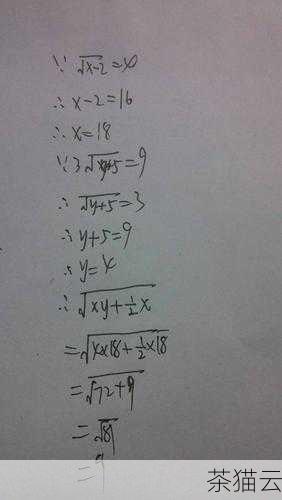 ∵ √x-2 = 4
∴ x-2=16
∴ x=18
∵ 3√y+5=9
∴ √y+5=3
∴ y+5=9
∴ y=4
∴ √xy+½x
=√4×18+½×18
=√72+9
=√81
=9
茶猫云